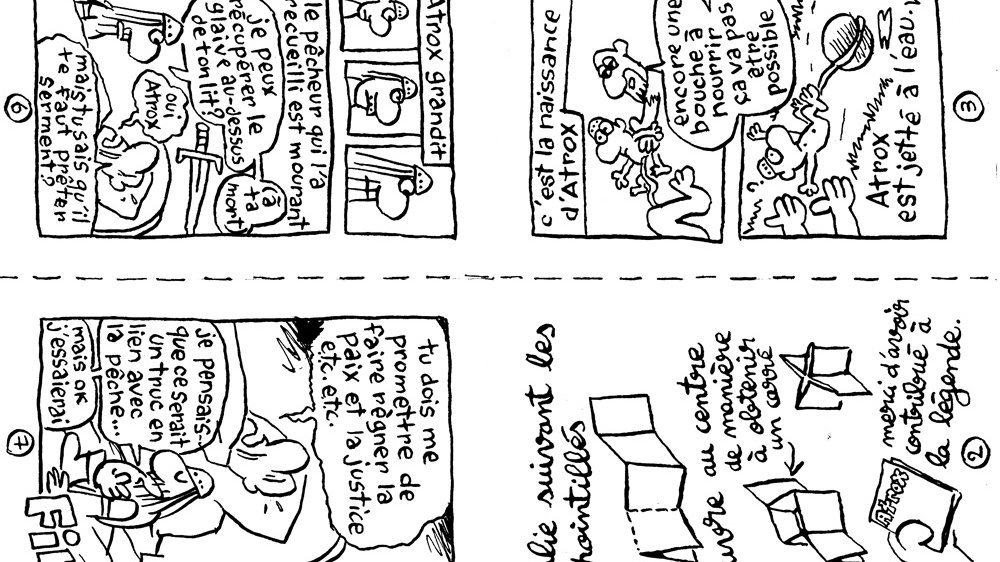 lie suivant les
pointillés
uvre au centre
de manière
à obtenir
un carré
merci d'avoir
contribué à
la légende.
2
c'est la naissance
d'Atrox
encore une
bouche à
nourrir
ça va pas
être
possible
Atrox
est jetté à l'eau.
3
Atrox grandit
le pêcheur qui l'a
recueilli est mourant
je peux
récupérer le
glaive au-dessus
de ton lit?
à
ta
mort
oui
Atrox
mais tu sais qu'il
te faut prêter
serment?
6
tu dois me
promettre de
faire règner la
paix et la justice
etc. etc.
je pensais
que ce serait
un truc en
lien avec
la pêche...
mais ok
j'essaierai
7